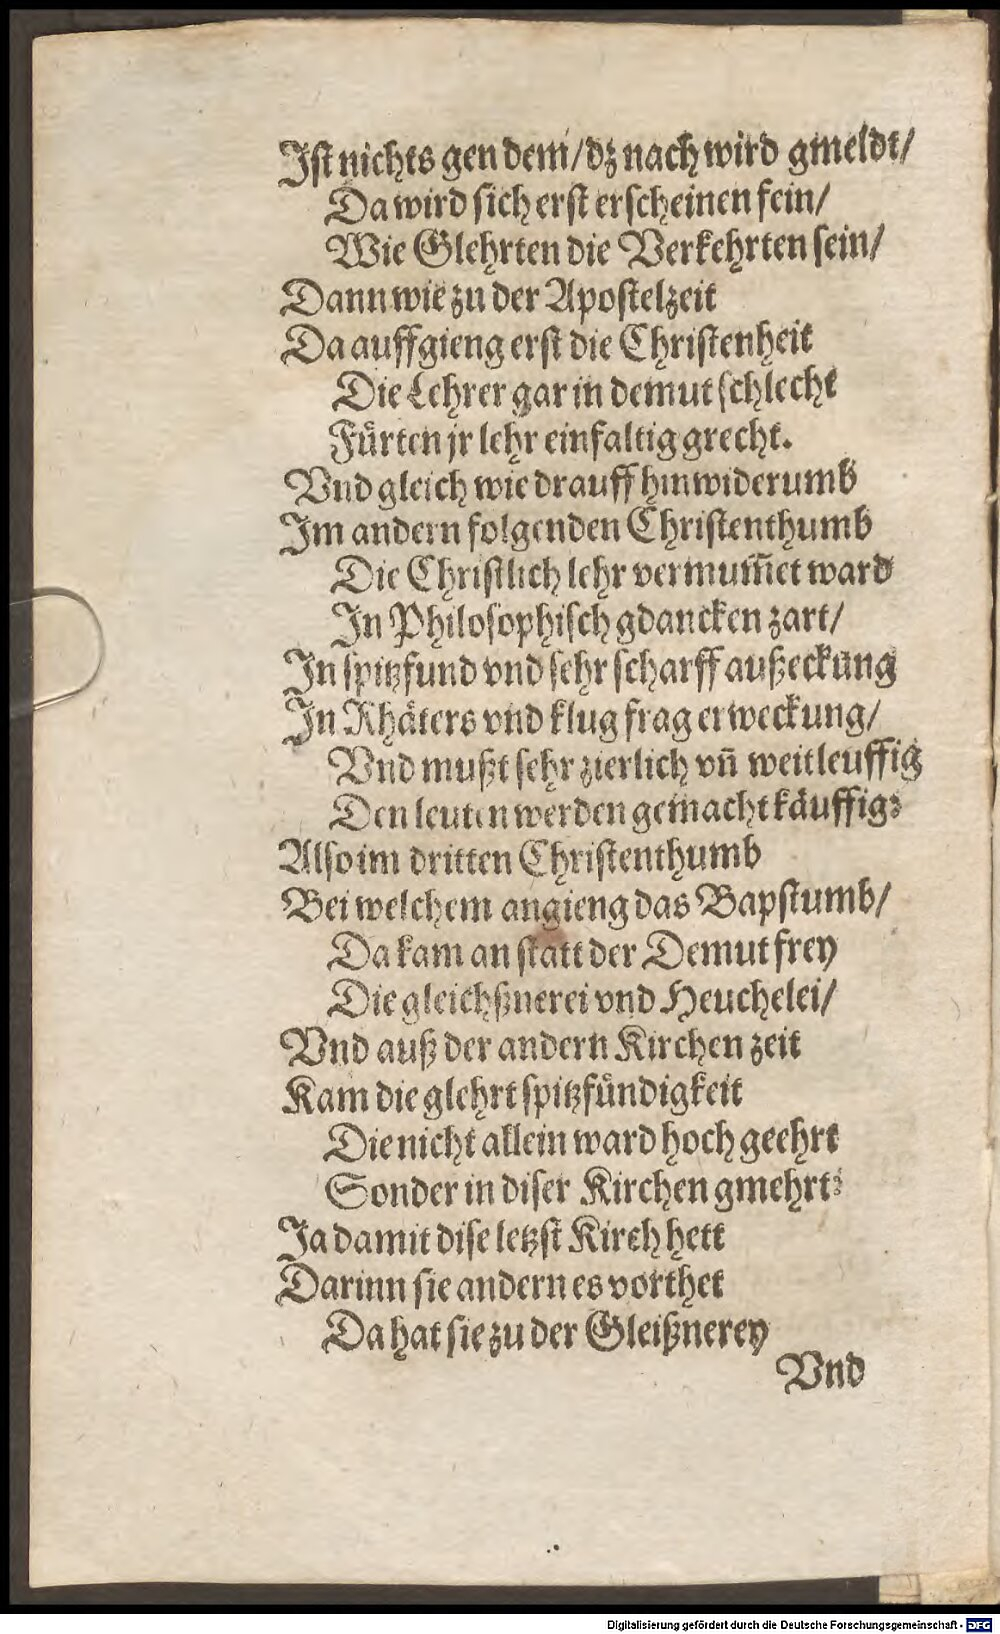 Ist nichts gen dem/ dz nach wird gmeldt/
Da wird sich erst erscheinen fein/
Wie Glehrten die Verkehrten sein/
Dann wie zu der Apostelzeit
Da auffgieng erst die Christenheit
Die Lehrer gar in demut schlecht
Fürten jr lehr einfaltig grecht.
Vnd gleich wie drauff hinwiderumb
Im andern folgenden Christenthumb
Die Christlich lehr vermum̃et ward
In Philosophisch gdancken zart/
In spitzfund vnd sehr scharff außeckung
In Rhäters vnd klug frag erweckung/
Vnd mußt sehr zierlich vñ weitleuffig
Den leuten werden gemacht käuffig:
Also im dritten Christenthumb
Bei welchem angieng das Bapstumb/
Da kam an statt der Demut frey
Die gleichßnerei vnd Heuchelei/
Vnd auß der andern Kirchen zeit
Kam die glehrt spitzfündigkeit
Die nicht allein ward hoch geehrt
Sonder in diser Kirchen gmehrt:
Ja damit dise letzst Kirch hett
Darinn sie andern es vorthet
Da hat sie zu der Gleißnerey
Vnd
Digitalisierung gefördert durch die Deutsche Forschungsgemeinschaft - DFG